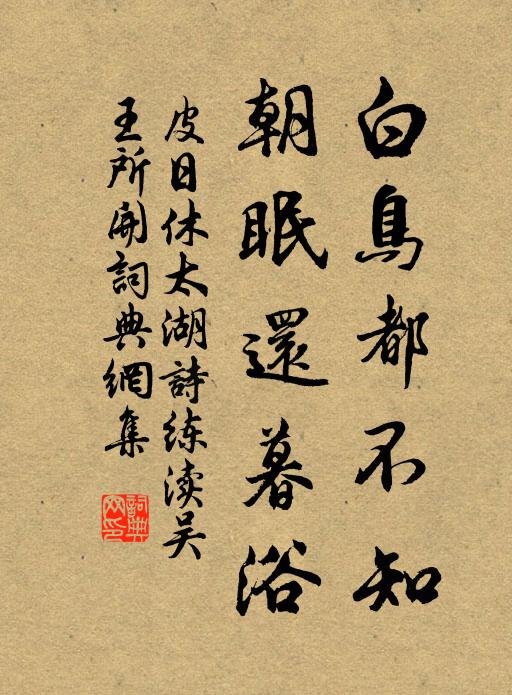 白鳥都不知
朝眠還暮浴
皮日休太湖詩练渎吴
王所開詞典網集
詞典網印